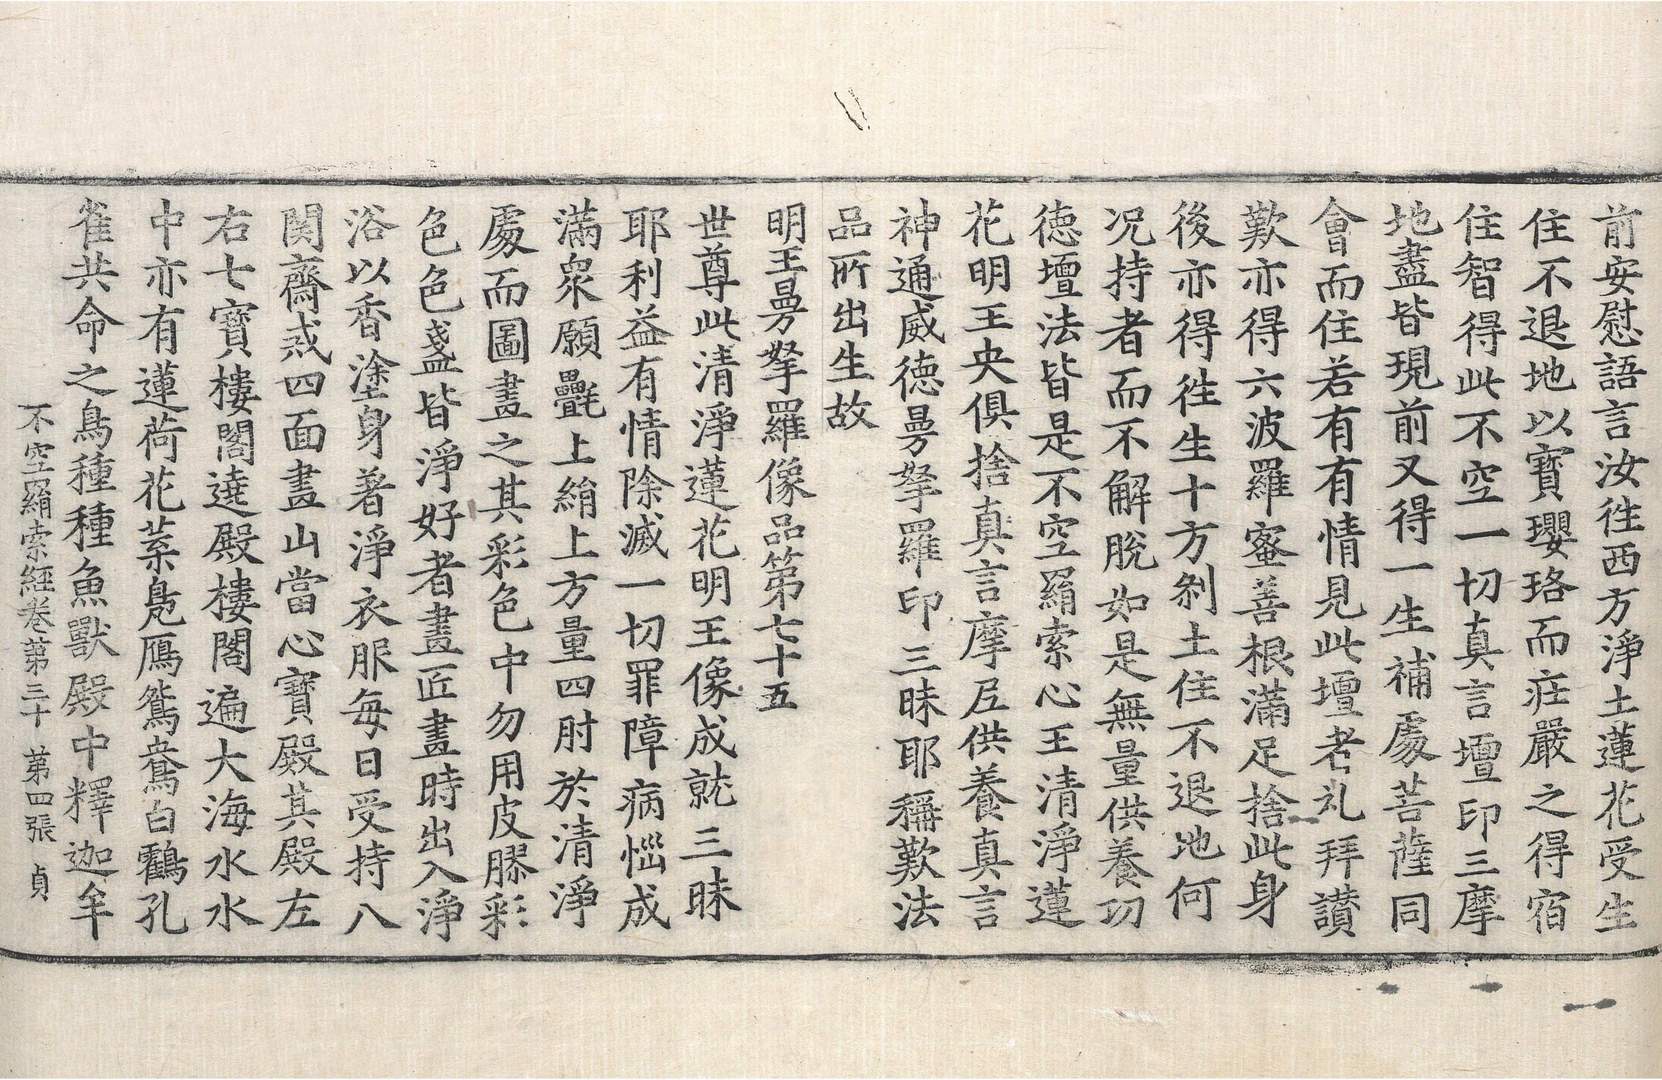 前安慰語言汝徃西方淨土蓮花受生
住不退地以寶瓔珞而庄嚴之得宿
住智得此不空一切真言壇印三摩
地盡皆現前又得一生補處菩薩同
會而住若有有情見此壇者礼拜讃
歎亦得六波羅蜜善根滿足捨此身
後亦得徃生十方剎土住不退地何
况持者而不解脫如是無量供養功
德壇法皆是不空羂索心王清淨蓮
花明王央俱捨真言摩尼供養真言
神通威德曼拏羅印三昧耶稱歎法
品所出生故
明王曼拏羅像品第七十五
世尊此清淨蓮花明王像成就三昧
耶利益有情除滅一切罪障病惱成
滿衆願㲲上絹上方量四肘於清淨
處而圖畫之其彩色中勿用皮膠彩
色色盞皆淨好者畫匠畫時出入淨
浴以香塗身著淨衣服每日受持八
関齋戒四面畫山當心寶殿其殿左
右七寶樓閣遶殿樓閣遍大海水水
中亦有蓮荷花葉鳧鴈鴛鴦白鶴孔
雀共命之鳥種種魚獸殿中釋迦牟
不空羂索經卷第三十 第四張 貞